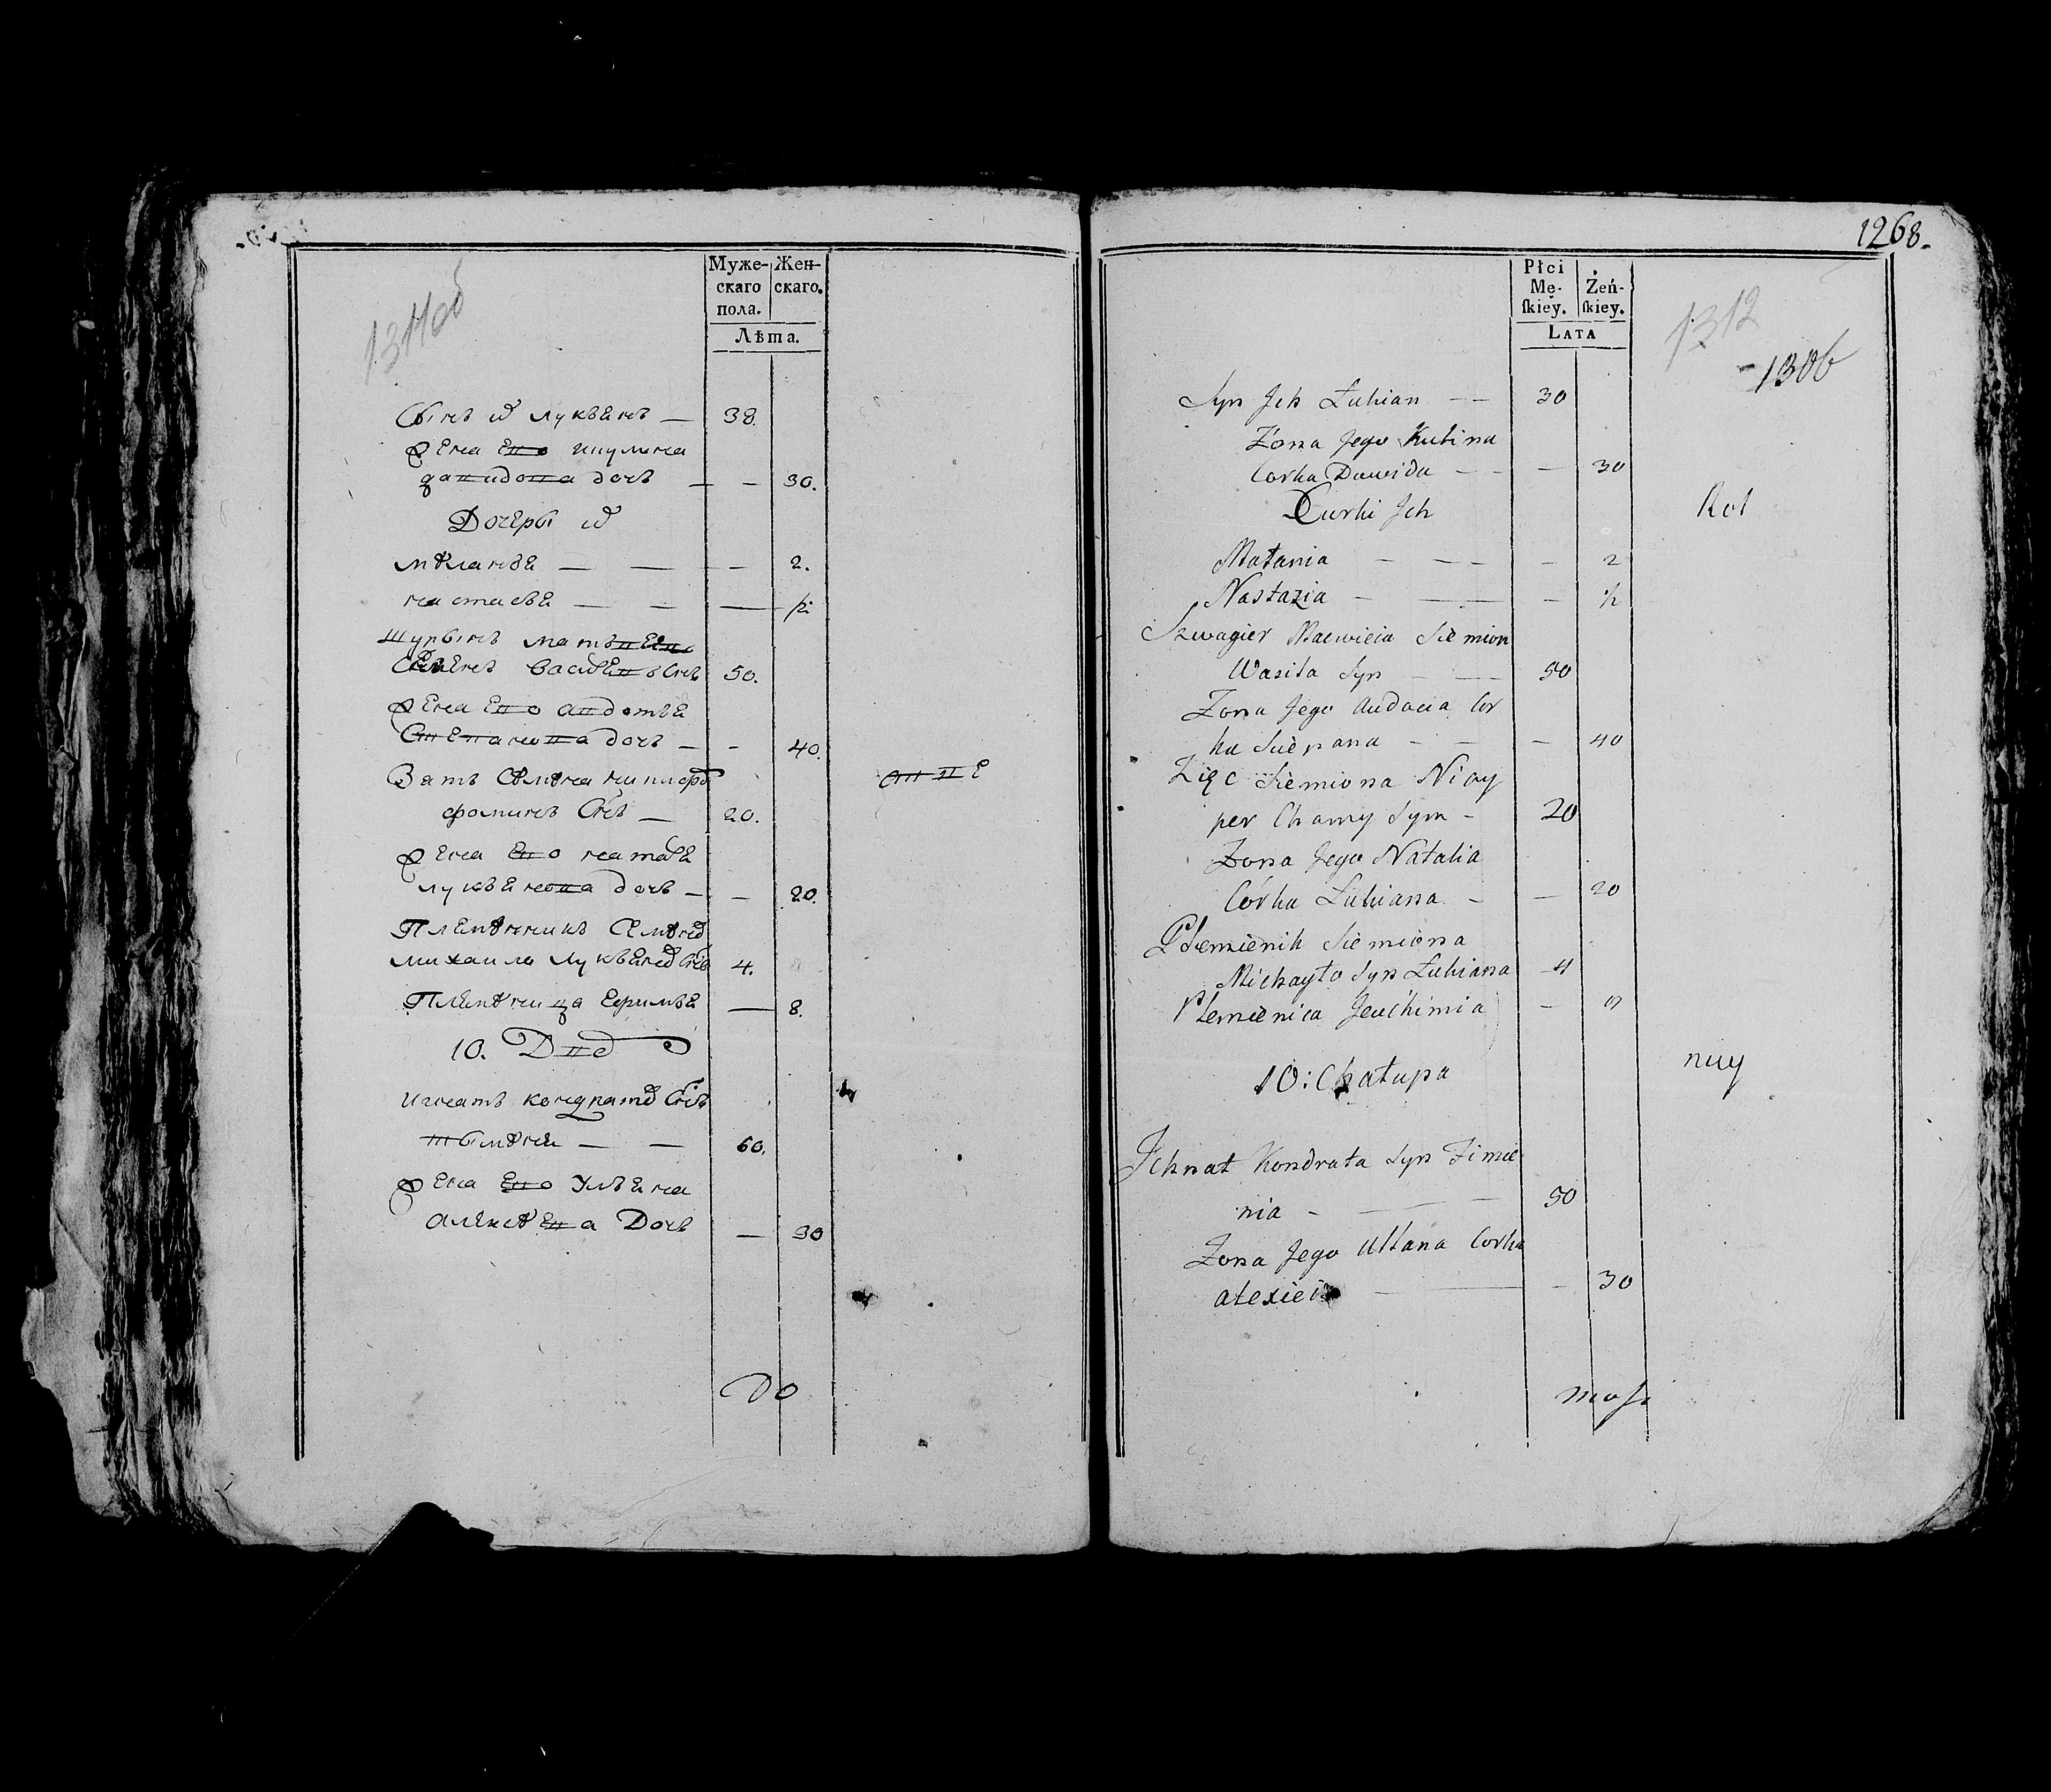 1311 об
Муже-
скаго
пола.
Жен-
скаго.
Лѣта.
Сынъ их Лукьянъ — 38.
Жена Его Акулина
давидова дочь — — 30.
Дочеры их
мѣланья — — — 2.
настасья — — — ½
Шуринъ матвѣевъ
Семенъ васильевъ Снъ 50.
Жена Его авдотья
Степанова дочь — - 40.
Зять Семена никифор
фоминъ Снъ — 20.
Жена Его наталья
лукьянова дочь — — 20.
Племянникъ Семенов
михаило лукьянов Снъ 4.
Племяница Ефимья — 8.
10. Двор
игнатъ кондратов Снъ
— — 60.
Жена Его Ульяна
алексѣева Дочь — 30
До
1268.
Płci
Mę-
skiey.
Żeń-
skiey.
LATA
1312
1306
Syn Ich Łukian — — 30
Żona Jego Kulina
Corka Dawida — - — 30
Curki Ich
Rol
Małania - — - - — 2
Nastazia - — — ½
Szwagier Maewieia Siemion
Wasila Syn — — 50
Zona Jego Audocia Cor
ka Sciepana - — — 40
Zięc Siemiona Nicy
per Chomy Syn - 20
Zona Jego Natalia
Córka Łukiana - — 20
Plemienik Siemiona
Michayło Syn Łukiana 4
Plemienica Jeuchimia —
10: Chałupa
nuy
Ichnat Kondrata Syn Zimie
nia - — 50
Zona Jego Ullana Corka
Alexieia — - 30